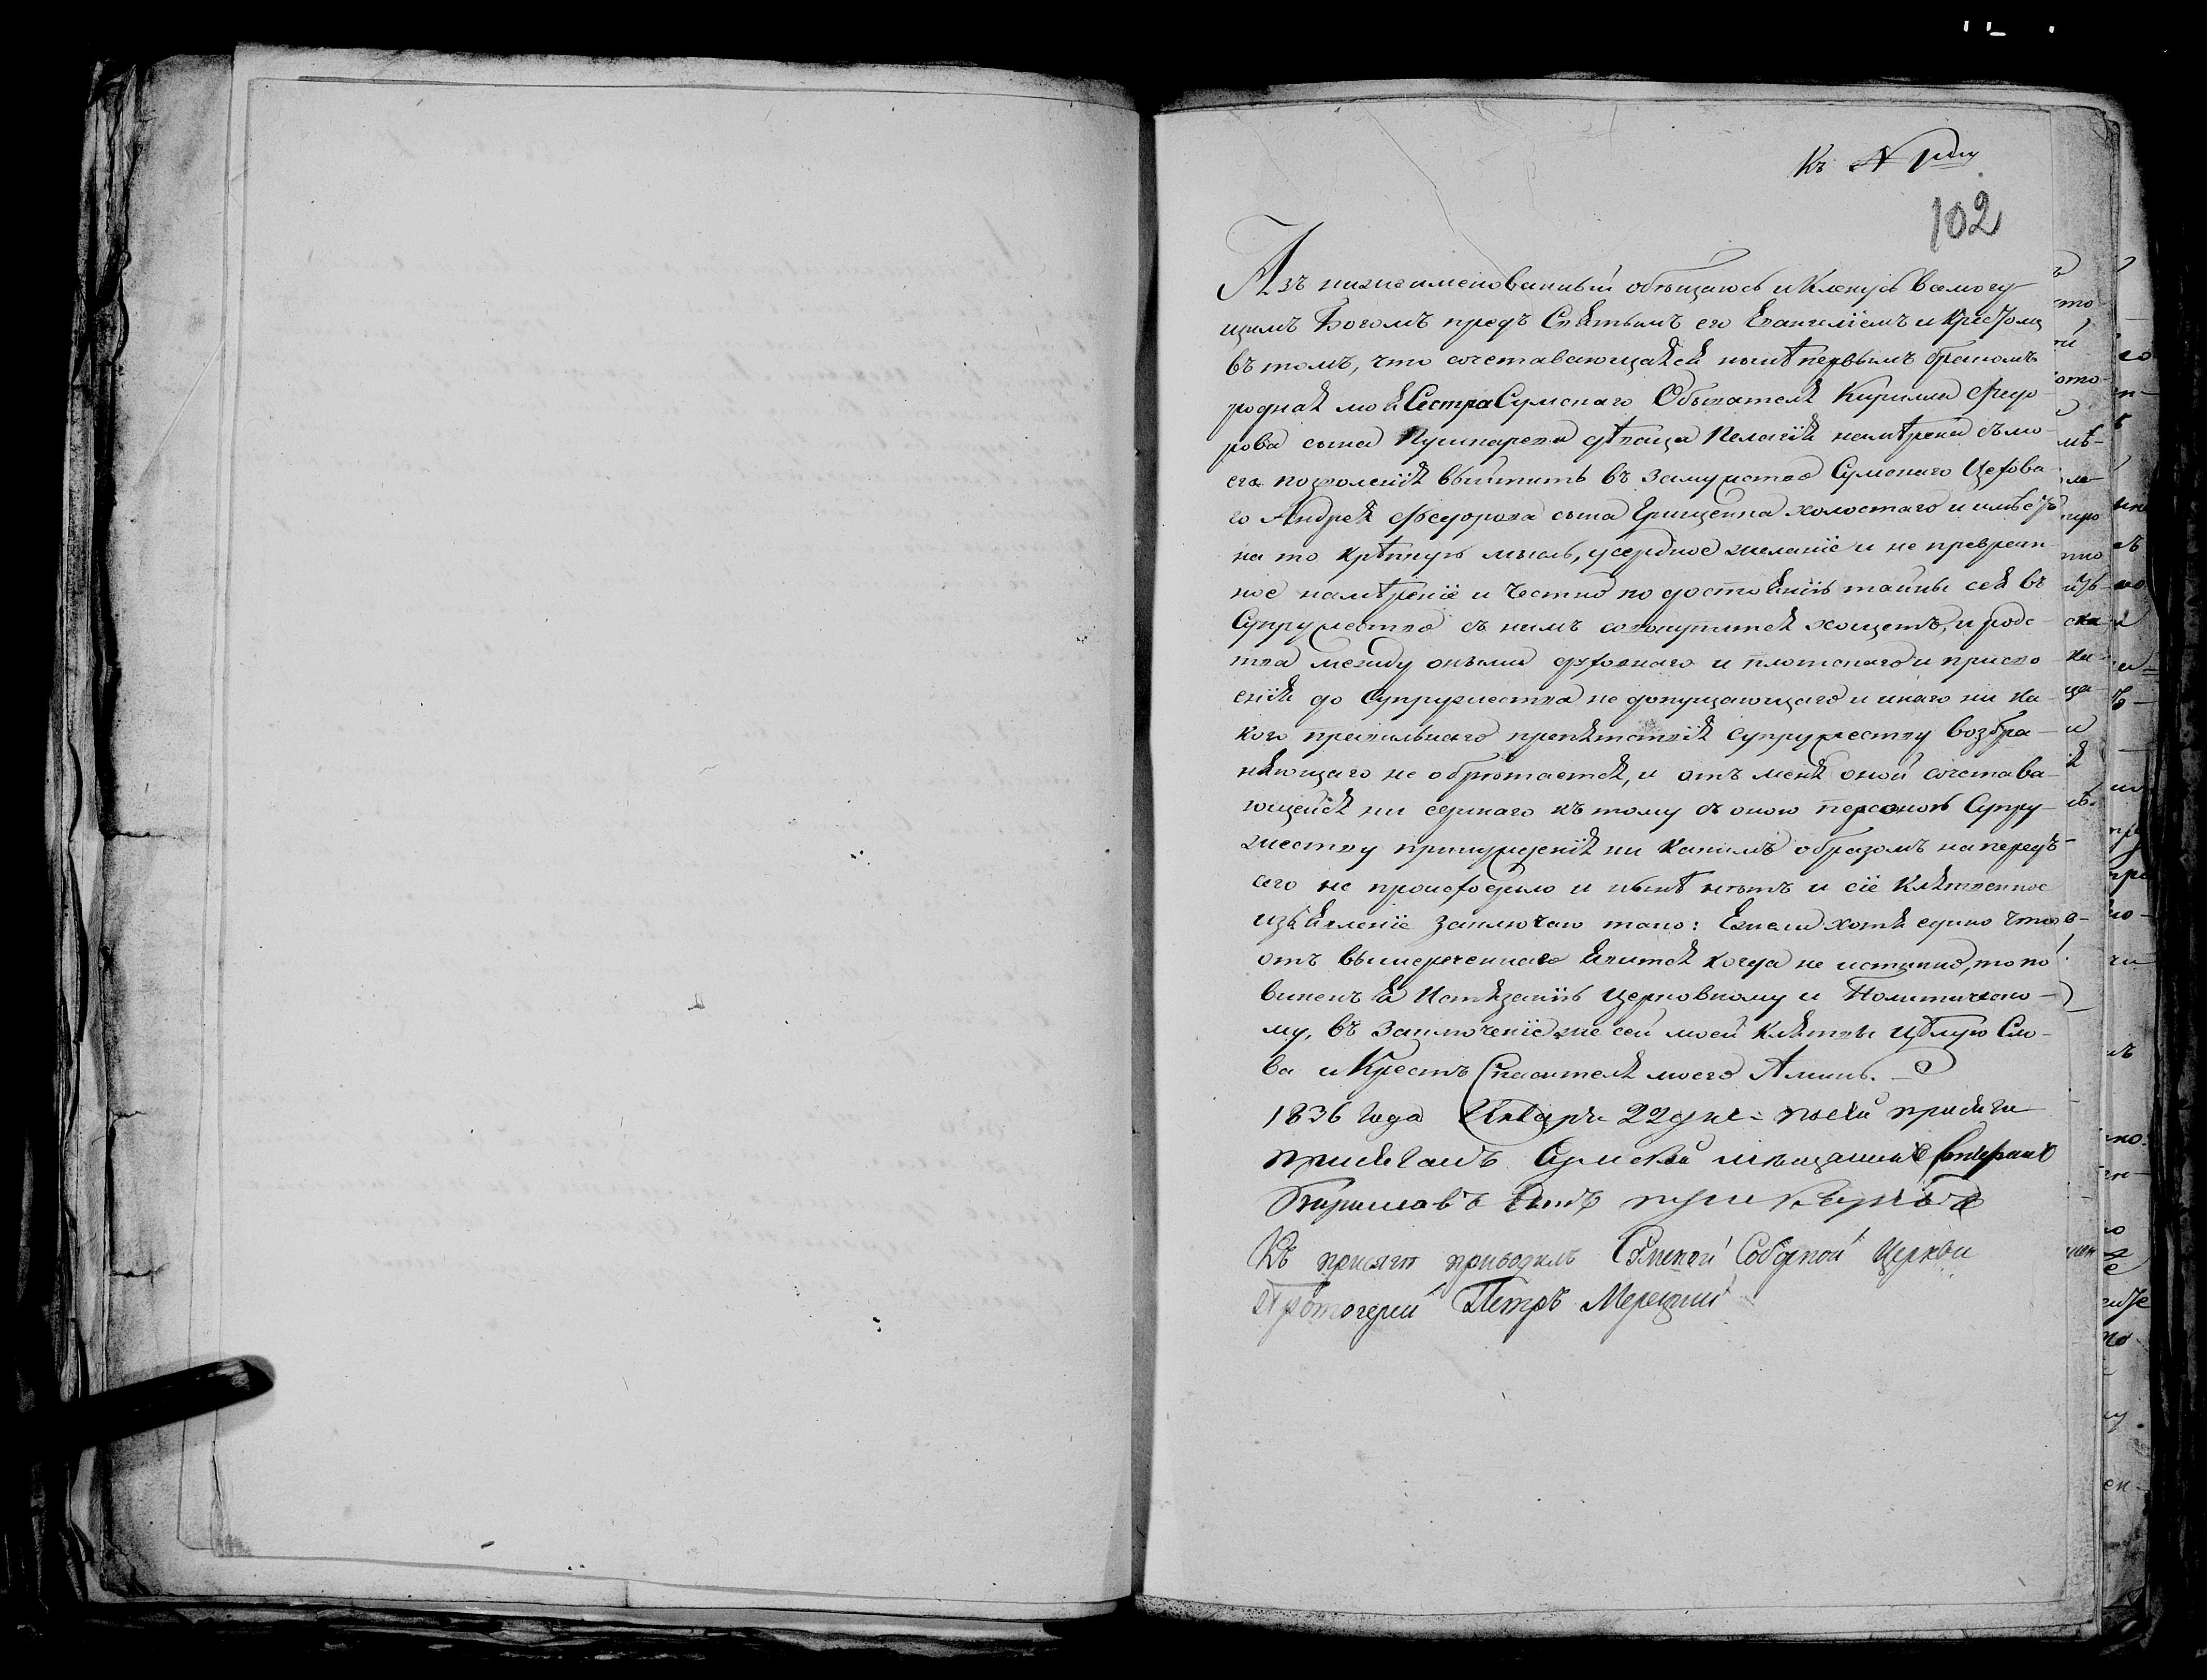 Къ № 1му
102
Азъ нижеименованный обѣщаюсь и Кленусь Всемогу-
щимъ Богомъ предъ Святымъ его Евангелiемъ и Крестомъ
въ томъ, что сочетавающаяся нынѣ первымъ бракомъ
родная моя Сестра Сумскаго Обывателя Кирилла Федо-
рова сына Пушкарева дѣвица Пелагiя намѣрена съ мо-
его позволенiя выйтить въ замужство Сумскаго Цехова-
го Андрея Федорова сына Грищенка холостаго и имѣетъ
на то крѣпкую мысль, усердное желанiе и не превратн
ное намѣренiе и честно по достоянiю тайны сея въ
Супружество съ нимъ совокупится хощетъ, и родс-
тва между оными духовнаго и плотскаго и присво
енiя до Супружества не допущающаго и инаго ни ка-
кого правильнаго препятствiя супружеству возбра-
няющаго не обрѣтается, и отъ меня оной сочетава-
ющейся ни единаго къ тому съ оною персоною Супру-
жеству принужденiя ни какимъ образомъ напередъ
сего не происходило и нынѣ нѣтъ и сiе Клятвенное
изъявленiе заключаю тако: Ежели хотя едино что
отъ вышереченнаго явится когда не истинно, то по
виненъ я Истязанiю Церковному и Политическо-
му, въ Заключенiе же сей моей Клятвы Цѣлую Сло-
ва и Крестъ Спасителя моего Аминь.
1836 Года Января 22 дня = по сей присяги
присягалъ Сумской мѣщанинъ
Кириловъ сынъ пушкаревъ
Къ присягѣ приводилъ Сумской Соборной Церкви
Протоиерей Петръ Мерецкий